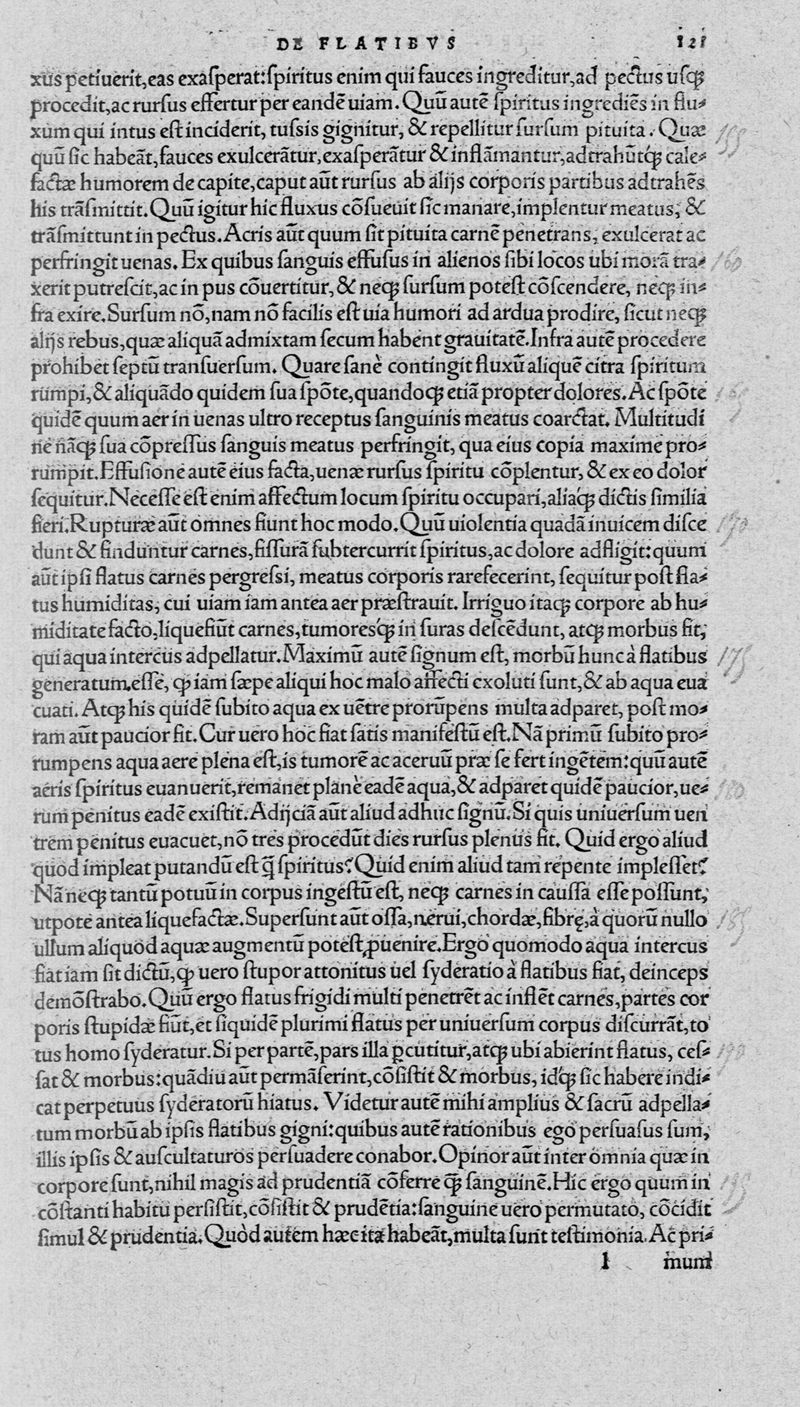 DE FLATIBVS 121
xus petíuerit,eas exaſperat:ſpiritus enim qui fauces ingreditur,ad pectus uſqꝫ
procedit,ac rurſus effertur per eandẽ uiam. Quũ autẽ ſpiritus ingrediẽs in flu⸗
xum qui intus eſt inciderit, tuſsis gignitur, & repellitur ſurſum pituita. Quæ
quũ ſic habeãt,fauces exulcerãtur,exaſperãtur & inflãmantur,adtrahũtqꝫ cale⸗
factæ humorem de capite,caput aũt rurſus ab alijs corporis partibus adtrahẽs
his trãſmittit. Quũ igitur hic fluxus cõſueuit ſic manare,implentur meatus, &
trãſmittunt in pectus. Acris aũt quum ſit pituita carnẽ penetrans, exulcerat ac
perfringit uenas. Ex quibus ſanguis effuſus in alienos ſibi locos ubi morã tra⸗
xerit putreſcit,ac in pus cõuertitur, & neqꝫ ſurſum poteſt cõſcendere, neqꝫ in⸗
fra exire. Surſum nõ,nam nõ facilis eſt uia humori ad ardua prodire, ſicut neqꝫ
alijs rebus,quæ aliquã admixtam ſecum habent grauitatẽ. Infra autẽ procedere
prohibet ſeptũ tranſuerſum. Quare ſanè contingit fluxũ aliquẽ citra ſpiritum
rumpi,& aliquãdo quidem ſua ſpõte,quandoqꝫ etiã propter dolores. Ac ſpõte
quidẽ quum aer in uenas ultro receptus ſanguinis meatus coarctat. Multitudi
ne nãqꝫ ſua cõpreſſus ſanguis meatus perfringit, qua eius copia maximè pro⸗
rumpit. Effuſione autẽ eius facta,uenæ rurſus ſpiritu cõplentur, & ex eo dolor
ſequitur. Neceſſe eſt enim affectum locum ſpiritu occupari,aliaqꝫ dictis ſimilia
fieri. Rupturæ aũt omnes fiunt hoc modo. Quũ uiolentia quadã inuicem diſce
dunt & finduntur carnes,fiſſurã ſubtercurrit ſpiritus,ac dolore adfligit:quum
aũt ipſi flatus carnes pergreſsi, meatus corporis rarefecerint, ſequitur poſt fla⸗
tus humiditas, cui uiam iam antea aer præſtrauit. Irriguo itaqꝫ corpore ab hu⸗
miditate facto,liquefiũt carnes,tumoresqꝫ in ſuras deſcẽdunt, atqꝫ morbus fit,
qui aqua intercus adpellatur. Maximũ autẽ ſignum eſt, morbũ hunc à flatibus
generatum.eſſe, ꝙ iam ſæpe aliqui hoc malo affecti exoluti ſunt,& ab aqua eua
cuati. Atqꝫ his quidẽ ſubito aqua ex uẽtre prorũpens multa adparet, poſt mo⸗
ram aũt paucior fit. Cur uero hoc fiat ſatis manifeſtũ eſt. Nã primũ ſubito pro⸗
rumpens aqua aere plena eſt,is tumorẽ ac aceruũ præ ſe fert ingẽtem:quũ autẽ
aeris ſpiritus euanuerit,remanet planè eadẽ aqua,& adparet quidẽ paucior,ue⸗
rum penitus eadẽ exiſtit. Adijciã aũt aliud adhuc ſignũ. Si quis uniuerſum uen
trem penitus euacuet,nõ tres procedũt dies rurſus plenus fit. Quid ergo aliud
quod impleat putandũ eſt ꝗ̃ ſpiritus? Quid enim aliud tam repente impleſſet?
Nã neqꝫ tantũ potuũ in corpus ingeſtũ eſt, neqꝫ carnes in cauſſa eſſe poſſunt,
utpote antea liquefactæ. Superſunt aũt oſſa,nerui,chordæ,fibrę,à quorũ nullo
ullum aliquod aquæ augmentũ poteſt ꝓuenire. Ergo quomodo aqua intercus
fiat iam ſit dictũ,ꝙ uero ſtupor attonitus uel ſyderatio à flatibus fiat, deinceps
demõſtrabo. Quũ ergo flatus frigidi multi penetrẽt ac inflẽt carnes,partes cor
poris ſtupidæ fiũt,et ſiquidẽ plurimi flatus per uniuerſum corpus diſcurrãt,to
tus homo ſyderatur. Si per partẽ,pars illa ꝑcutitur,atqꝫ ubi abierint flatus, ceſ⸗
ſat & morbus:quãdiu aũt permãſerint,cõſiſtit & morbus, idqꝫ ſic habere indi⸗
cat perpetuus ſyderatorũ hiatus. Videtur autẽ mihi amplius & ſacrũ adpella⸗
tum morbũ ab ipſis flatibus gigni:quibus autẽ rationibus ego perſuaſus ſum,
illis ipſis & auſcultaturos perſuadere conabor. Opinor aũt inter omnia quæ in
corpore ſunt,nihil magis ad prudentiã cõferre ꝗ̃ ſanguinẽ. Hic ergo quum in
cõſtanti habitu perſiſtit,cõſiſtit & prudẽtia:ſanguine uero permutato, cõcidit
ſimul & prudentia. Quòd autem hæc ita habeãt,multa ſunt teſtimonia. Ac pri⸗
l mum